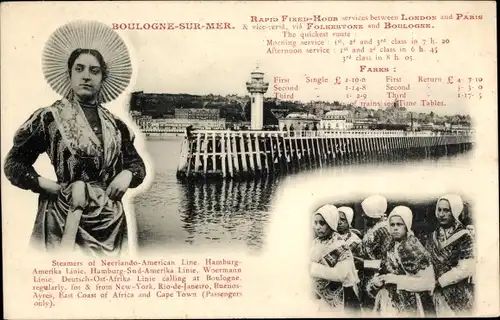 BOULOGNE-SUR-MER.
RAPID FIXED-HOUR services between LONDON and PARIS
& vice-versâ, viâ FOLKESTONE and BOULOGNE.
The quickest route :
Morning service : 1st, 2d and 3rd class in 7 h. 20
Afternoon service : 1st and 2d class in 6 h. 45
3rd class in 8 h. 05
FARES :
First Single £ 2-10-0 First Return £ 4- 7-10
Second — 1-14-8 Second —
Third — 1-2-9 Third — 1-17-5
of trains, see Time Tables.
Steamers of Neerlando-American Line, Hamburg-
Amerika Linie, Hamburg-Sud-Amerika Linie, Woermann
Linie, Deutsch-Ost-Afrika Linie calling at Boulogne,
regularly, for & from New-York, Rio-de-Janeiro, Buenos-
Ayres, East Coast of Africa and Cape Town (Passengers
only).